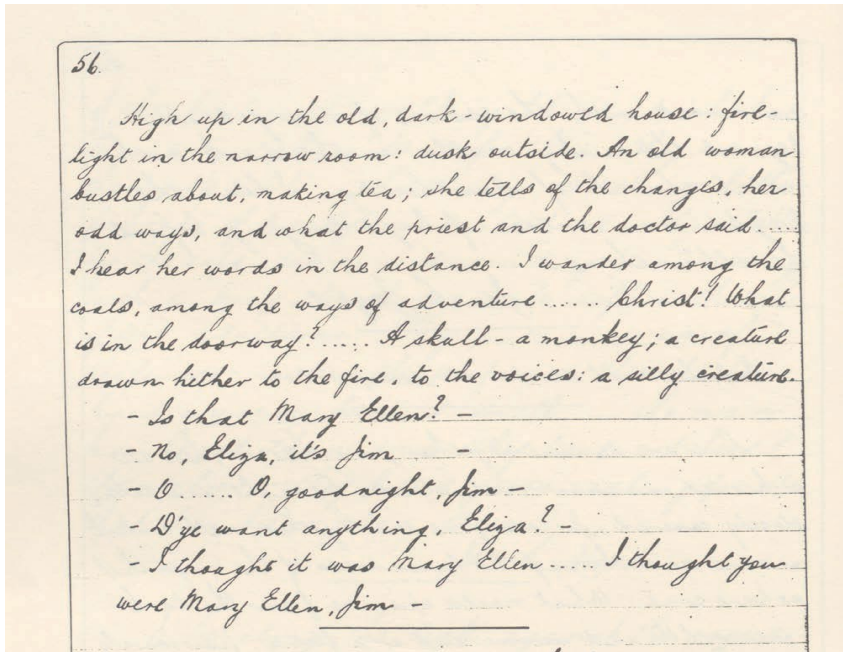 56.
High up in the old, dark-windowed house: fire-
light in the narrow room: dusk outside. An old woman
bustles about, making tea; she tells of the changes, her
odd ways, and what the priest and the doctor said.....
I hear her words in the distance. I wander among the
coals, among the ways of adventure...... Christ! What
is in the doorway?...... A skull - a monkey; a creature
drawn hither to the fire, to the voices: a silly creature.
- Is that Mary Ellen? -
- No, Eliza, it's Jim -
- O...... O, goodnight, Jim -
- D'ye want anything, Eliza? -
- I thought it was Mary Ellen..... I thought you
were Mary Ellen, Jim -